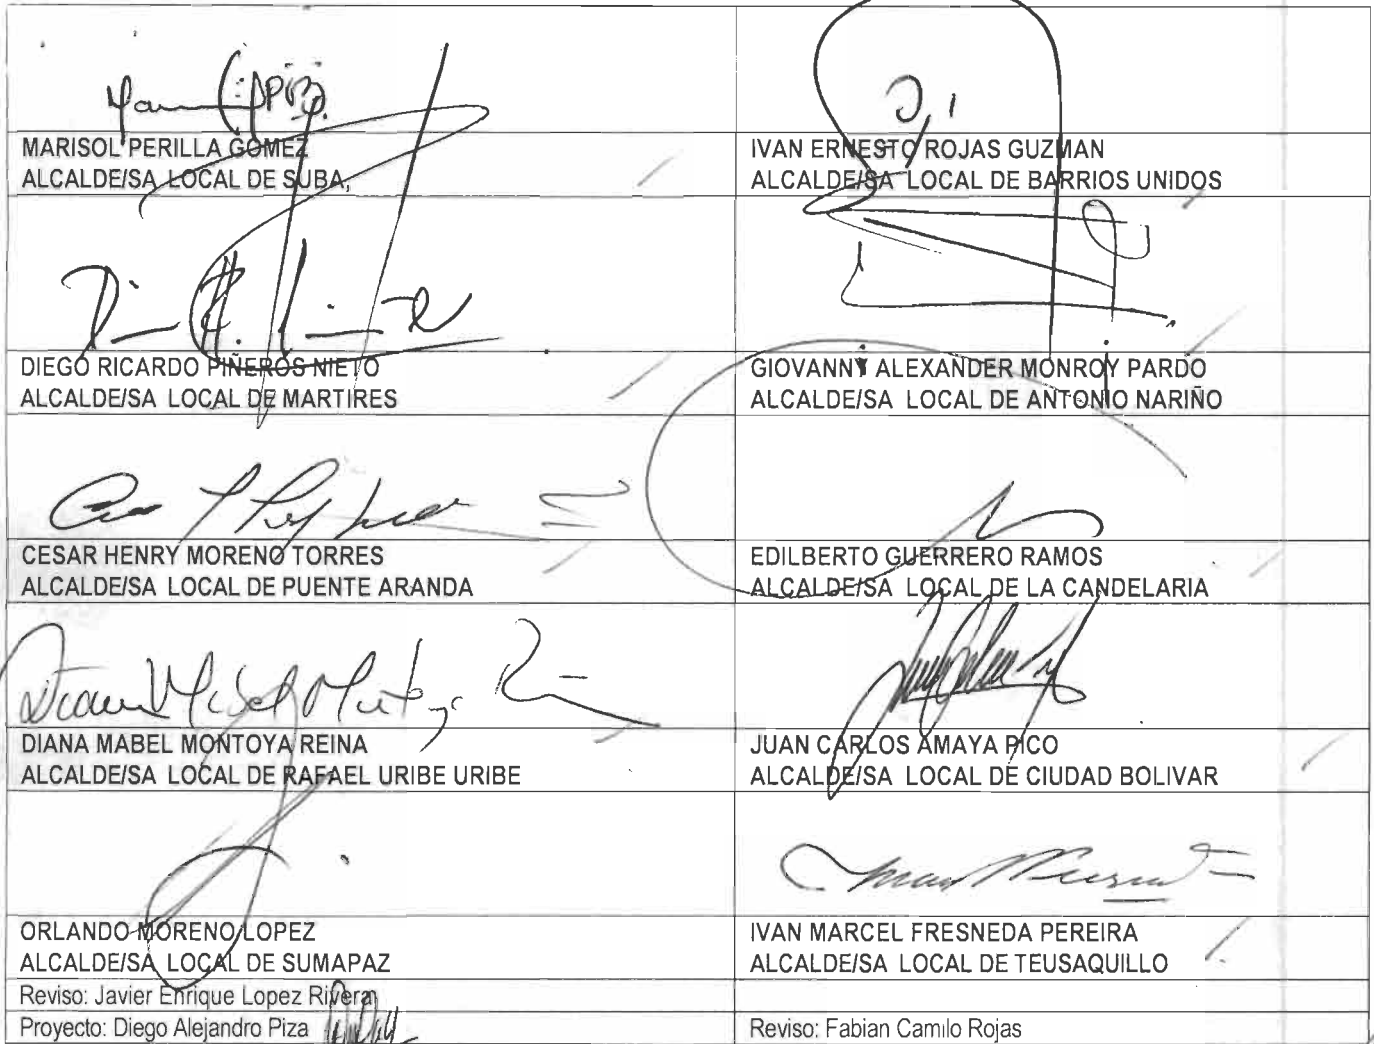 MARISOL PERILLA GOMEZ
ALCALDE/SA LOCAL DE SUBA,
IVAN ERNESTO ROJAS GUZMAN
ALCALDE/SA LOCAL DE BARRIOS UNIDOS
DIEGO RICARDO PIÑEROS NIETO
ALCALDE/SA LOCAL DE MARTIRES
GIOVANNY ALEXANDER MONROY PARDO
ALCALDE/SA LOCAL DE ANTONIO NARIÑO
CESAR HENRY MORENO TORRES
ALCALDE/SA LOCAL DE PUENTE ARANDA
EDILBERTO GUERRERO RAMOS
ALCALDE/SA LOCAL DE LA CANDELARIA
Diana Mabel Montoya R
DIANA MABEL MONTOYA REINA
ALCALDE/SA LOCAL DE RAFAEL URIBE URIBE
JUAN CARLOS AMAYA PICO
ALCALDE/SA LOCAL DE CIUDAD BOLIVAR
ORLANDO MORENO LOPEZ
ALCALDE/SA LOCAL DE SUMAPAZ
IVAN MARCEL FRESNEDA PEREIRA
ALCALDE/SA LOCAL DE TEUSAQUILLO
Reviso: Javier Enrique Lopez Rivera
Proyecto: Diego Alejandro Piza
Reviso: Fabian Camilo Rojas